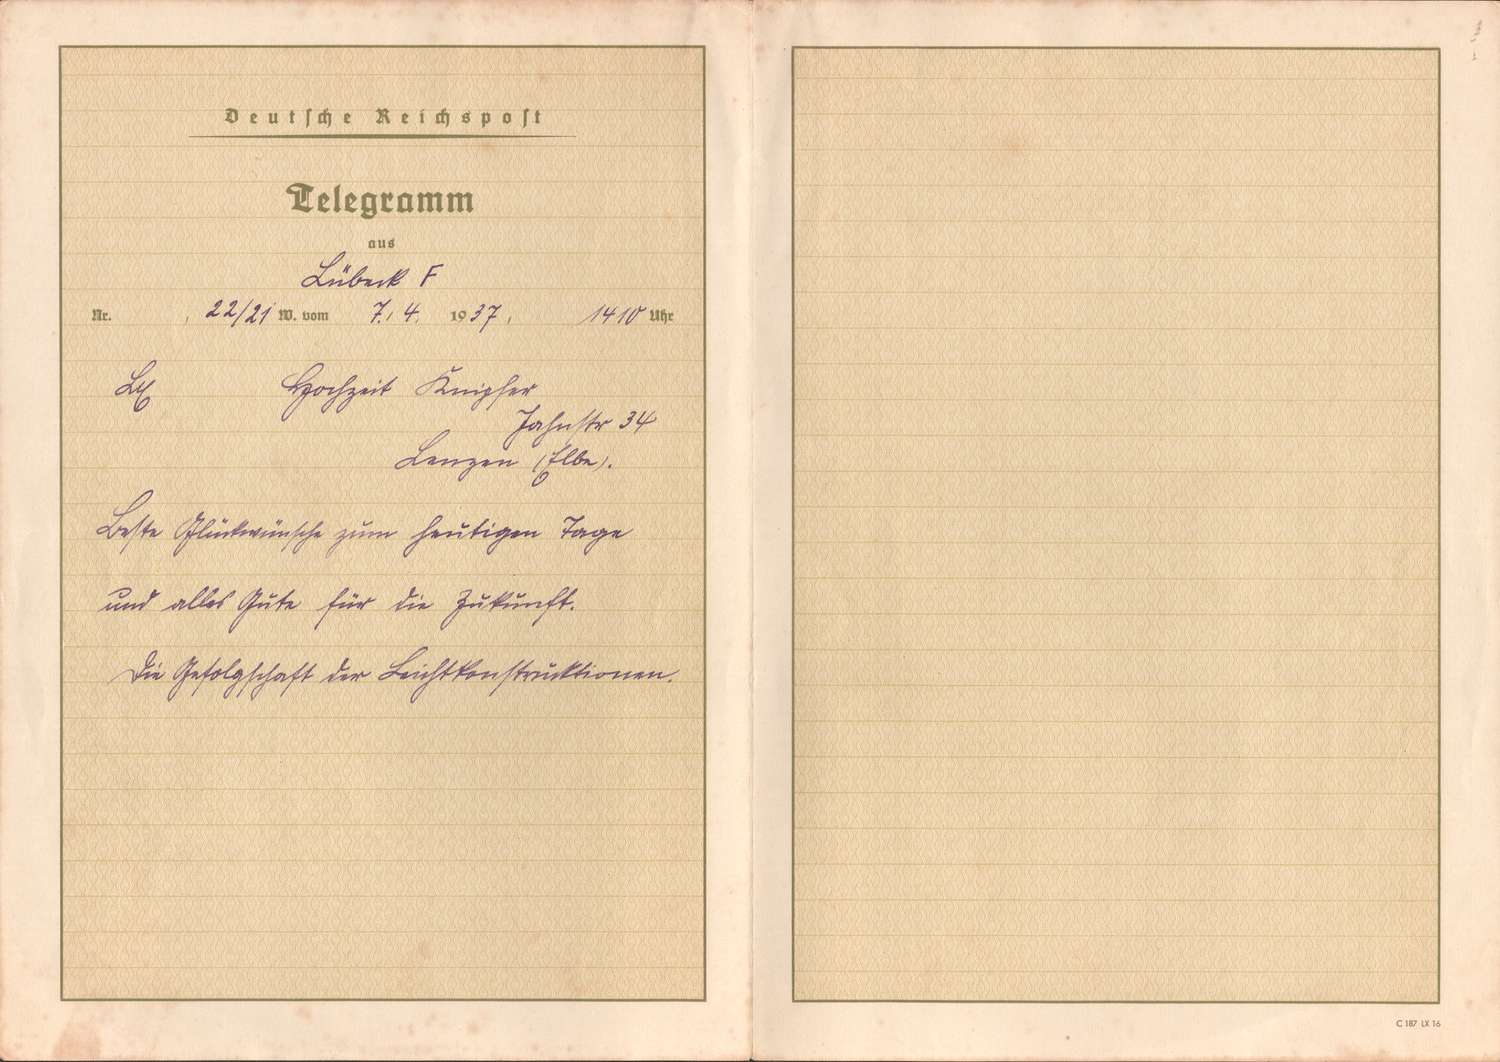 Deutsche Reichspost
Telegramm
aus
Lübeck F
Nr. , 22/21 W. vom 7. 4. 1937, 1410 Uhr
Lx Hochzeit Knipfer
Jahnstr 34
Lenzen (Elbe).
Beste Glückwünsche zum heutigen Tage
und alles Gute für die Zukunft.
Die Gefolgschaft der Leichtkonstruktionen.
C 187 LX 16